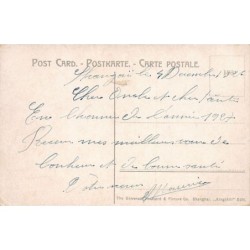 POST CARD. - POSTKARTE. - CARTE POSTALE.
Shangaï le 4 Décembre
Chers Oncle et chère Tante
En l'honneur de l'année
mes meilleurs voeux de
bonheur et de bonne santé
Votre neveu
Maurice
The & Picture Co. Shanghai.